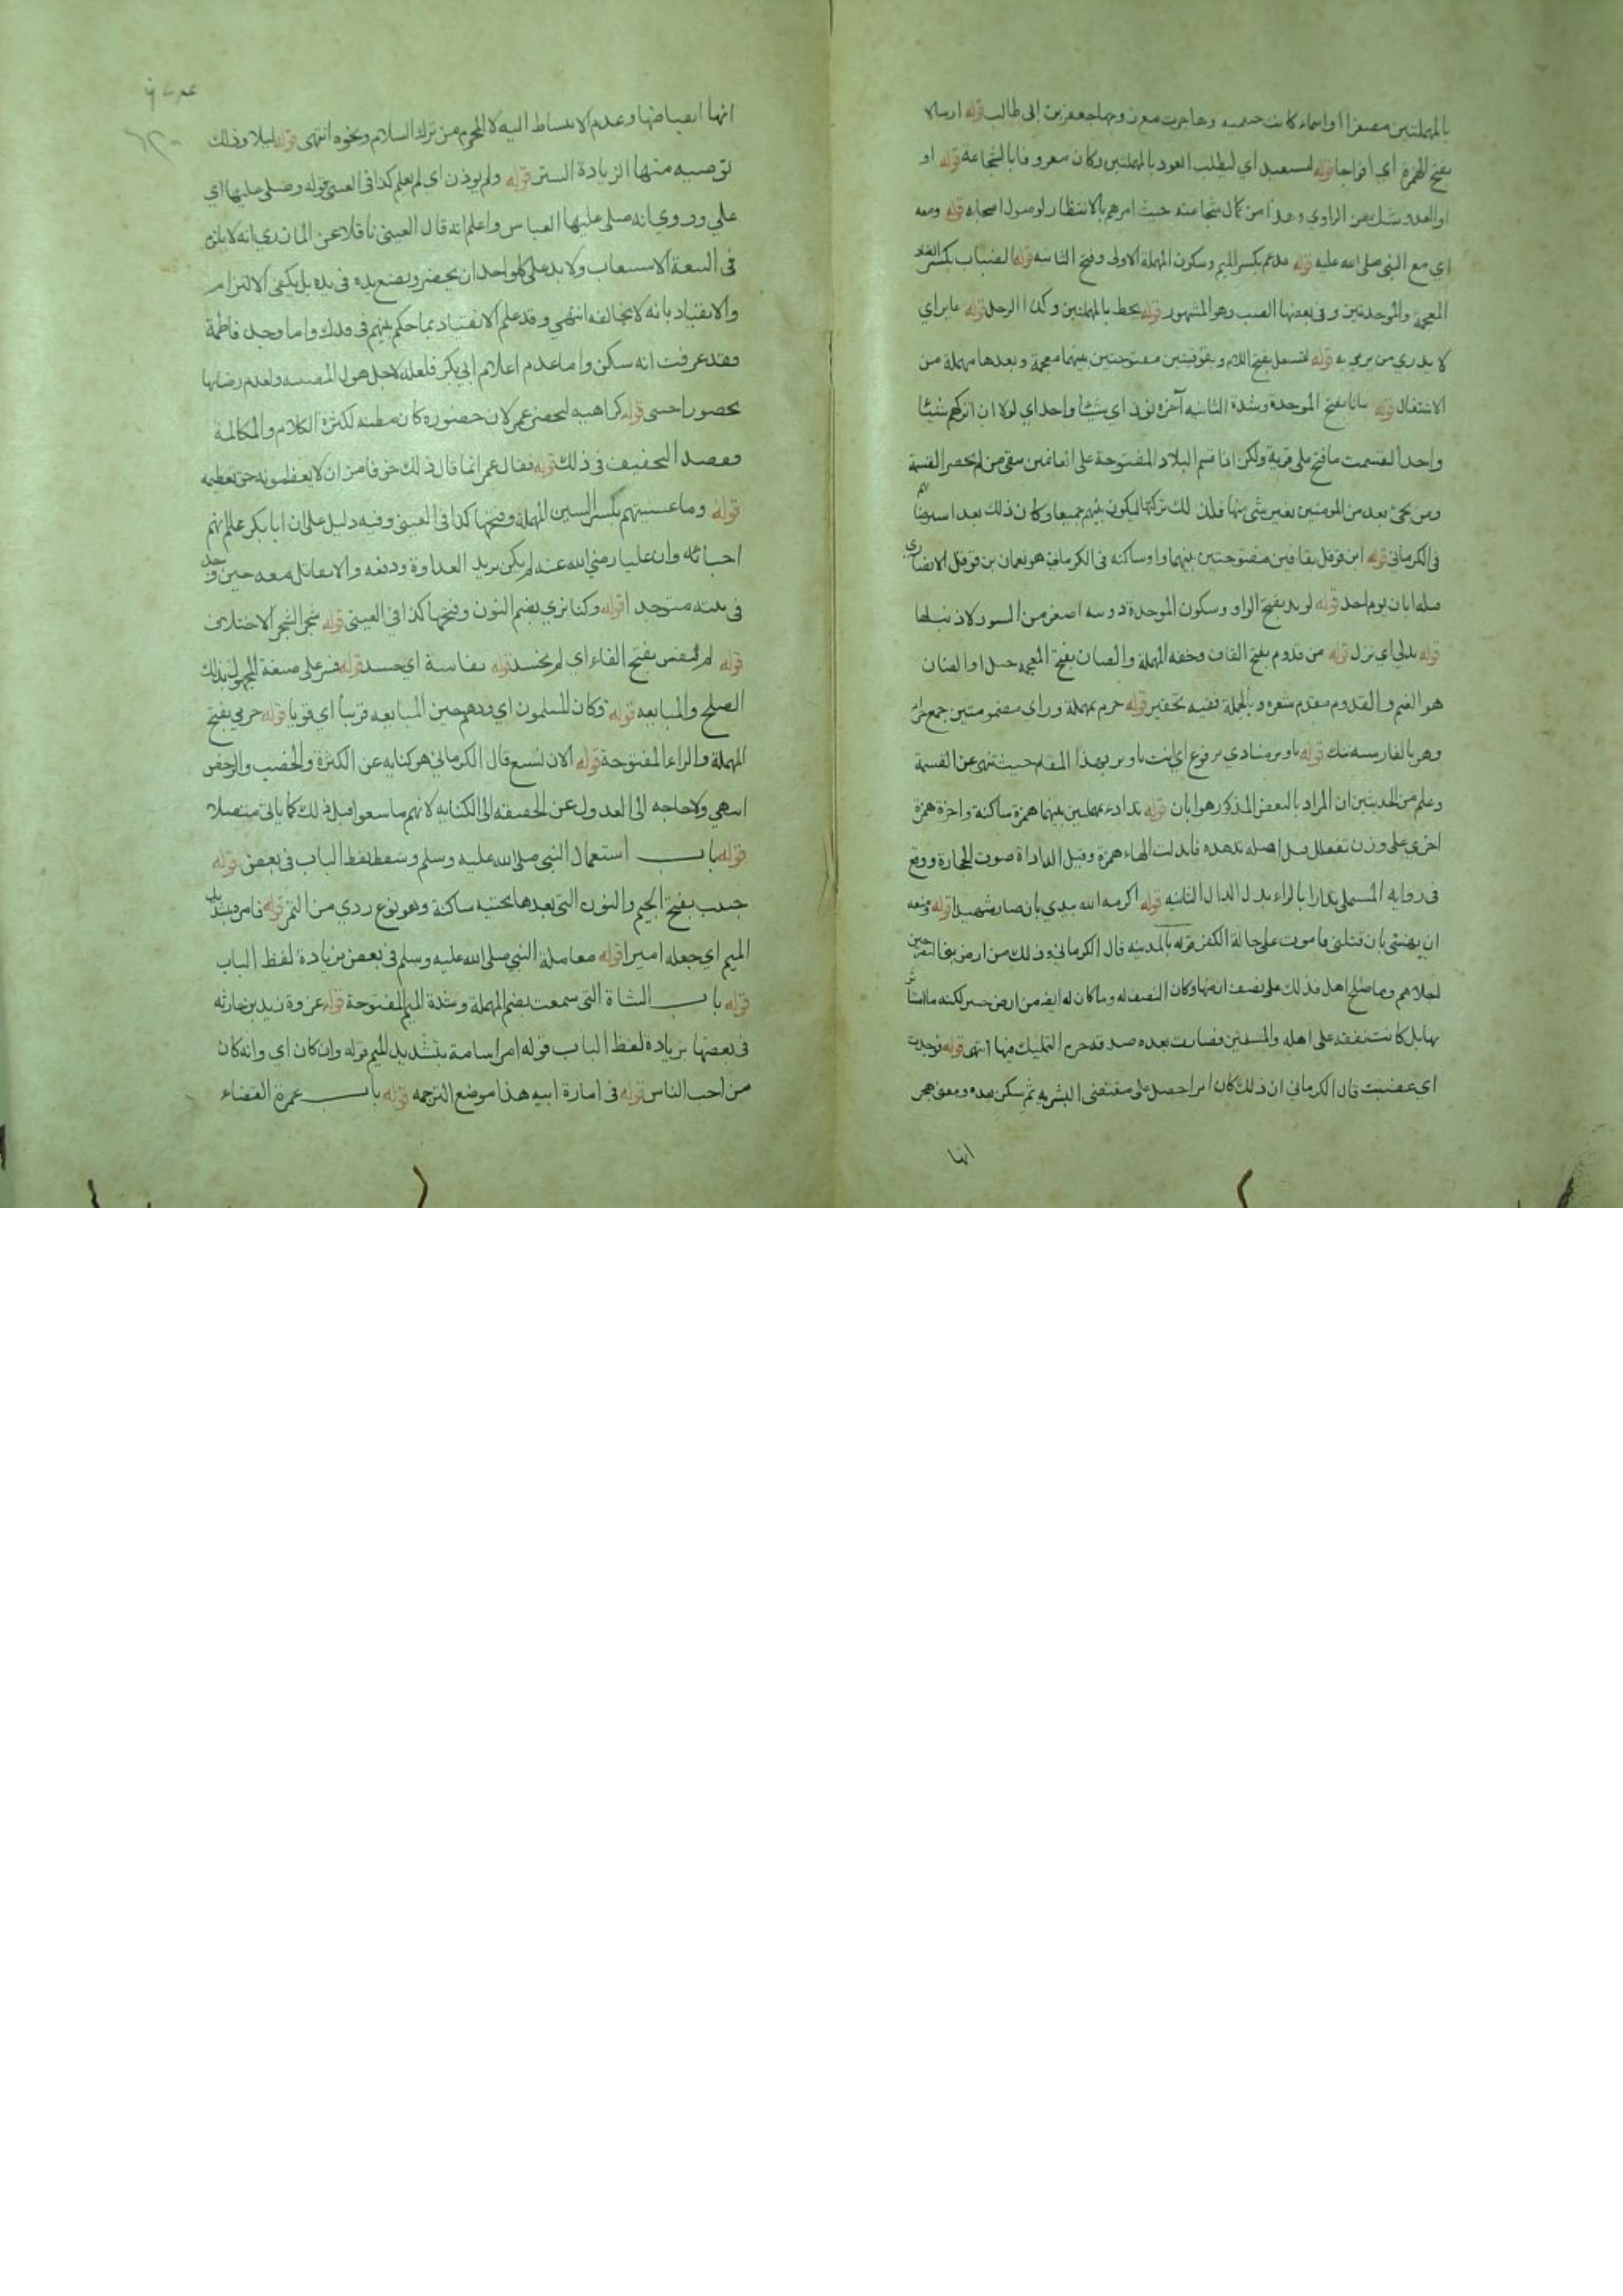 بالمهملتين مصغرا واسماء كانت وهاجرت مع زوجها جعفر بن ابي طالب قوله ارسالا
بفتح الهمزة أي افواجا قوله أي ليطلب العود بالمهملتين وكان معروفا بالشجاعة قوله او
او العدو شك من الراوي وهذا من كمال شجاعته حيث امرهم بالانتظار لوصول اصحابه قوله ومعه
اي مع النبي صلى الله عليه قوله مدعم بكسر الميم وسكون المهملة الاولى وفتح الثانيه قوله الضباب بكسر الضاد
المعجمة والموحدتين وفي بعضها الضبيب وهو المشهور قوله يحط بالمهملتين وكذا الرحل قوله عاير اي
لا يدري من يرمي به قوله لتشتعل بفتح اللام وبفوقيتين مفتوحتين بينهما معجمة وبعدها مهملة من
الاشتعال قوله ببانا بفتح الموحدة وشدة الثانيه آخره نون اي شيئا واحدا اي لولا ان اتركهم شيئا
واحدا لقسمت ما فتح على قرية ولكن اذا قسم البلاد المفتوحة على الغانمين بقي من لم يحضر القسمة
ومن يجئ بعد من المومنين بغير شئ منها فلذلك تركتها ليكون بينهم جميعا وكان ذلك بعد استرضائهم
في الكرماني قوله ابن قوقل بقافين مفتوحتين بينهما واو ساكنه في الكرماني هو نعمان بن قوقل الانصاري
قتله ابان يوم احد قوله لوبر بفتح الواو وسكون الموحدة دويبه اصغر من السنور لا ذنب لها
قوله تدلى اي نزل قوله من قدوم بفتح القاف وخفه المهملة والضان بفتح المعجمه جبل او الضان
هو الغنم والقدوم مقدم شعره وبالجملة ففيه تحقير قوله حزم بمهملة وزاي مضمومتين جمع حزام
وهو بالفارسيه تنك قوله يا وبر منادي مرفوع اي انت يا وبر بهذا المقام حيث تنهى عن القسمة
وعلم من الحديثين ان المراد بالبعض المذكور هو ابان قوله تدادء بمهملتين بينهما همزة ساكنة واخره همزة
اخرى على وزن تفعلل قيل اصله تدهده فابدلت الهاء همزة وقيل الداداة صوت الحجارة ووقع
في روايه المستملي تدارا بالراء بدل الدال الثانيه قوله اكرمه الله بيدي بان صار شهيدا قوله ومنعه
ان يهينني بان قتلني فاموت على حالة الكفر قوله بالمدينه قال الكرماني وذلك من ارض بني النضير حين
اجلاهم ومما صالح اهل فدك على نصف ارضها وكان النصف له وما كان له ايضا من ارض خيبر لكنه ما استاثر
بها بل كان ينفقه على اهله والمسلمين فصارت بعده صدقه حرم التمليك فيها انتهى قوله فوجدت
اي غضبت قال الكرماني ان ذلك كان امرا حصل على مقتضى البشريه ثم سكن بعده ومعنى هجر
انها
انها انقباضها وعدم الانبساط اليه لا المحرم من ترك السلام ونحوه انتهى قوله ليلا وذلك
توصيه منها الزيادة الستر قوله ولم يوذن اي لم يعلم كذا في العيني قوله وصلى عليها اي
علي وروي انه صلى عليها العباس واعلم انه قال العيني ناقلا عن المازري انه لا يلزم
في البيعة الاستيعاب ولا بد على كل واحد ان يحضر ويضع يده في يده بل يكفي الالتزام
والانقياد بانه لا يخالفه انتهى وقد علم الانقياد بما حكم بينهم في فدك واما وجد فاطمة
فقد عرفت انه سكن واما عدم اعلام ابي بكر فلعله لاجل هول المصيبه ولعدم رضايها
بحضور اجنبي قوله كراهيه ليحضر عمر لان حضوره كان مظنه لكثرة الكلام والمكالمة
فقصد التخفيف في ذلك قوله فقال عمر انما قال ذلك خوفا من ان لا يعظمونه حق تعظيمه
قوله وما عسيتهم بكسر السين المهملة وفتحها كذا في العيني وفيه دليل على ان ابا بكر علم انهم
احبائه وان عليا رضي الله عنه لم يكن يريد العداوة ودفعه والا يقاتل معه حين وجد
في بيته متوحدا قوله وكنا نرى بضم النون وفتحها كذا في العيني قوله شجر الشجر الاختلاف
قوله لم ننفس بفتح الفاء اي لم نحسد قوله نفاسة اي حسد قوله فسر على صيغة المجهول بذلك
الصلح والمبايعه قوله وكان المسلمون اي ودهم حين المبايعه قريبا أي قويا قوله حرمي بفتح
المهملة والراء المفتوحة قوله الان نشبع قال الكرماني هو كنايه عن الكثرة والخصب والرخص
انتهى ولا حاجه الى العدول عن الحقيقه الى الكنايه لانهم ما شبعوا قبل ذلك كما ياتي متصلا
قوله باب استعمال النبي صلى الله عليه وسلم وسقط لفظ الباب في بعض قوله
جنيب بفتح الجيم والنون التي بعدها تحتيه ساكنة وهو نوع ردي من التمر قوله فامره بتشديد
الميم اي جعله اميرا قوله معاملة النبي صلى الله عليه وسلم في بعض بزيادة لفظ الباب
قوله باب الشاة التي سمعت بضم المهملة وشدة الميم المفتوحة قوله غزوة زيد بن حارثه
في بعضها بزيادة لفظ الباب قوله امر اسامة بتشديد الميم قوله وان كان اي وانه كان
من احب الناس قوله في امارة ابيه هذا موضع الترجمه قوله باب عمرة القضاء